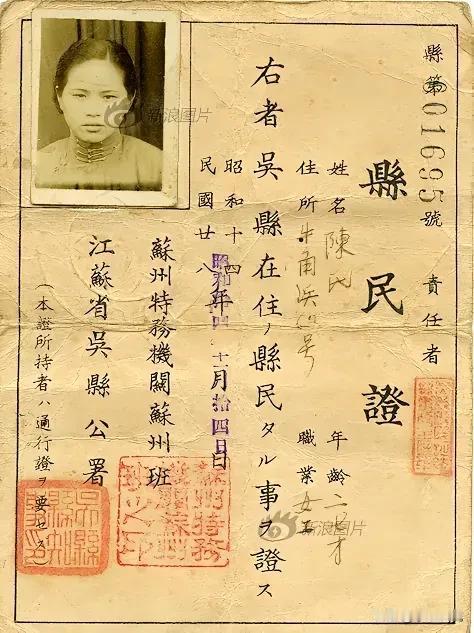 縣第01695號
責任者
縣民證
姓名 陳氏
年齡 二
才
住所 牛角浜
号
職業 女工
右者吳縣在住ノ縣民タル事ヲ證ス
昭和十四年
民國廿八年
十一月拾四日
蘇州特務機關蘇州班
江蘇省吳縣公署
(本證所持者ハ通行證ヲ要セズ)
新浪图片
新浪图片